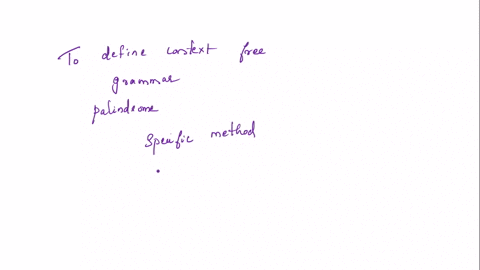 To define context free
grammar
palindrome
specific method